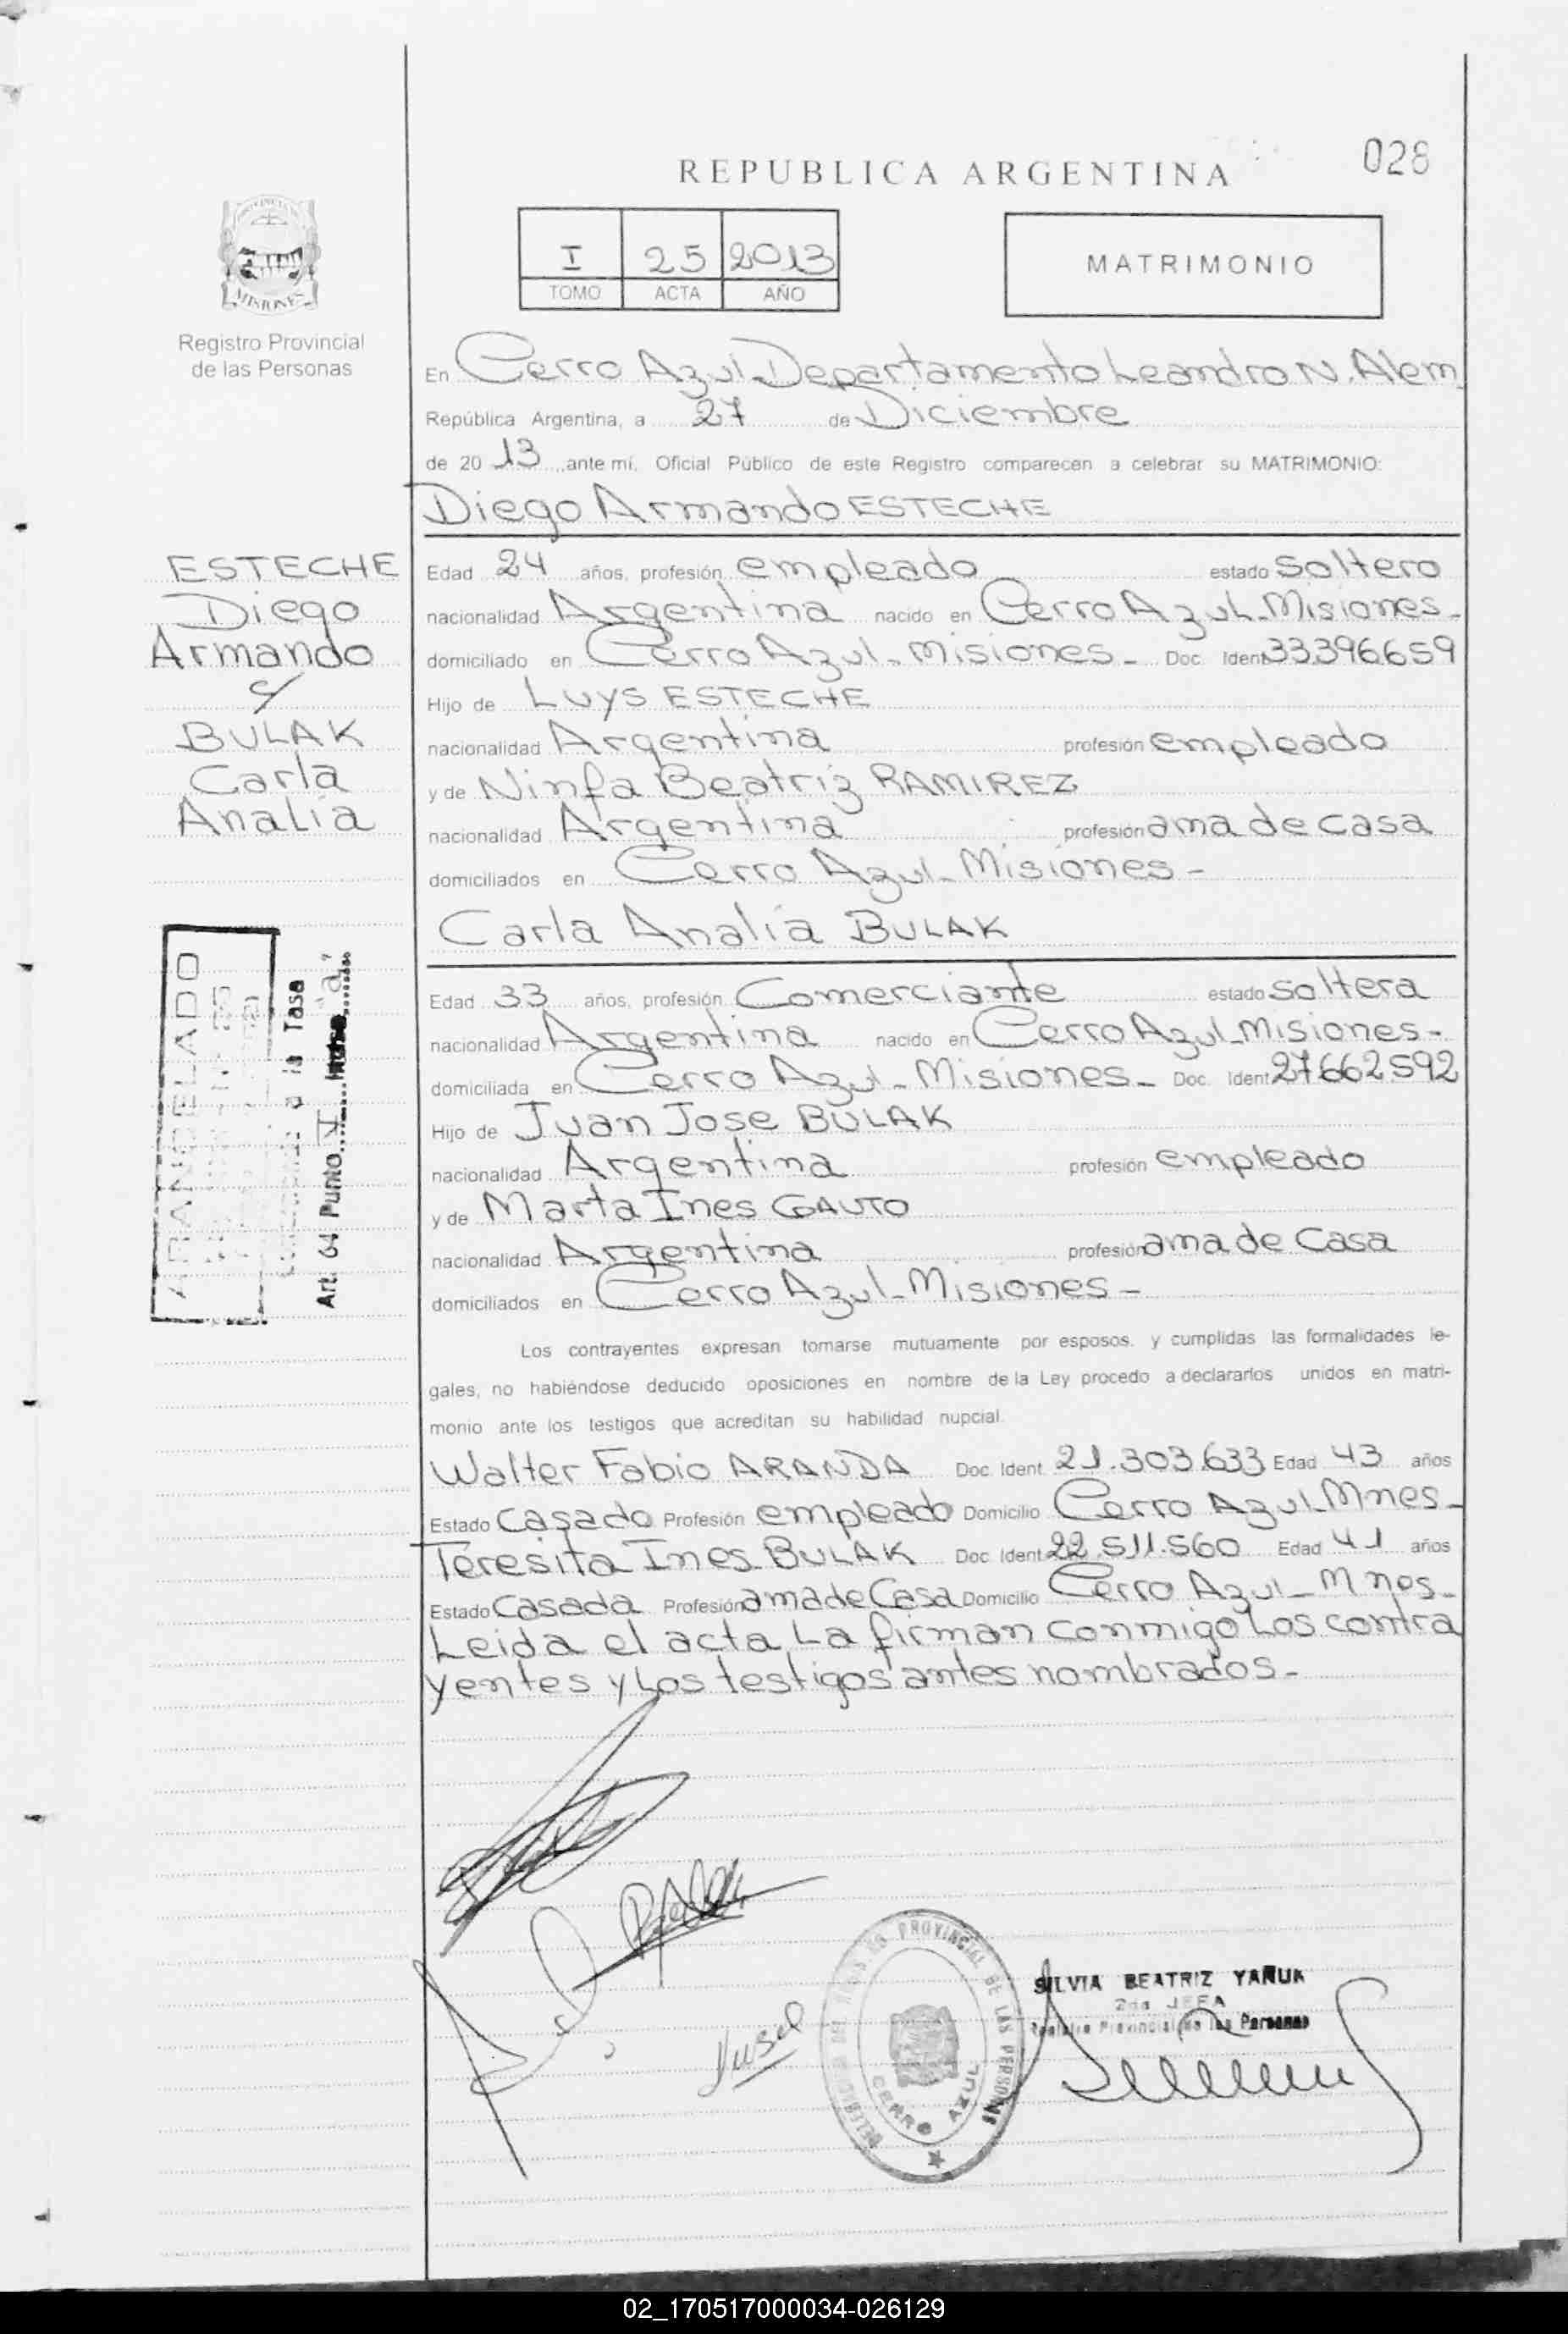 028
REPUBLICA ARGENTINA
I 25 2013
TOMO ACTA AÑO
MATRIMONIO
MISIONES
Registro Provincial
de las Personas
En Cerro Azul Departamento Leandro N. Alem
República Argentina, a 27 de Diciembre
de 2013, ante mí, Oficial Público de este Registro comparecen a celebrar su MATRIMONIO:
Diego Armando ESTECHE
ESTECHE
Diego
Armando
c/
BULAK
Carla
Analía
Edad 24 años, profesión empleado estado soltero
nacionalidad Argentina nacido en Cerro Azul-Misiones-
domiciliado en Cerro Azul-Misiones- Doc. Ident 33.396.659
Hijo de Luys ESTECHE
nacionalidad Argentina profesión empleado
y de Ninfa Beatriz RAMIREZ
nacionalidad Argentina profesión ama de casa
domiciliados en Cerro Azul-Misiones-
Carla Analía BULAK
ARANCELADO
a la Tasa
Art. 64 Punto V Inciso "a"
Edad 33 años, profesión Comerciante estado soltera
nacionalidad Argentina nacido en Cerro Azul-Misiones-
domiciliada en Cerro Azul-Misiones- Doc. Ident 27.662.592
Hijo de Juan Jose BULAK
nacionalidad Argentina profesión empleado
y de Marta Ines GAUTO
nacionalidad Argentina profesión ama de Casa
domiciliados en Cerro Azul-Misiones-
Los contrayentes expresan tomarse mutuamente por esposos, y cumplidas las formalidades le-
gales, no habiéndose deducido oposiciones en nombre de la Ley procedo a declararlos unidos en matri-
monio ante los testigos que acreditan su habilidad nupcial.
Walter Fabio ARANDA Doc. Ident. 21.303.633 Edad 43 años
Estado Casado Profesión empleado Domicilio Cerro Azul-Mnes-
Teresita Ines BULAK Doc. Ident 22.511.560 Edad 41 años
Estado Casada Profesión ama de Casa Domicilio Cerro Azul-Mnes-
Leida el acta La firman conmigo Los contra
yentes y Los testigos antes nombrados-
PROVINCIAL DE LAS PERSONAS
CERRO AZUL
SILVIA BEATRIZ YAÑUK
2da JEFA
Registro Provincial de las Personas
02_170517000034-026129